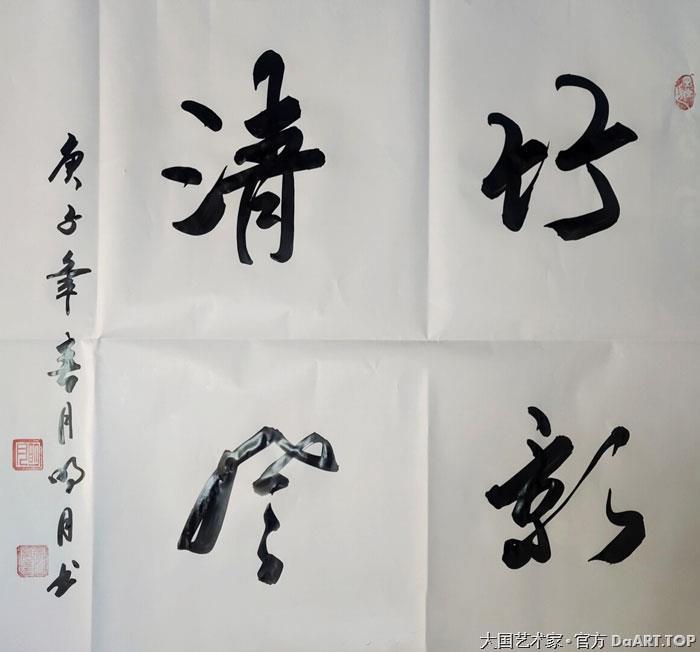 竹影
清风
庚子年春月明月书
大国艺术家·官方 DaART.TOP